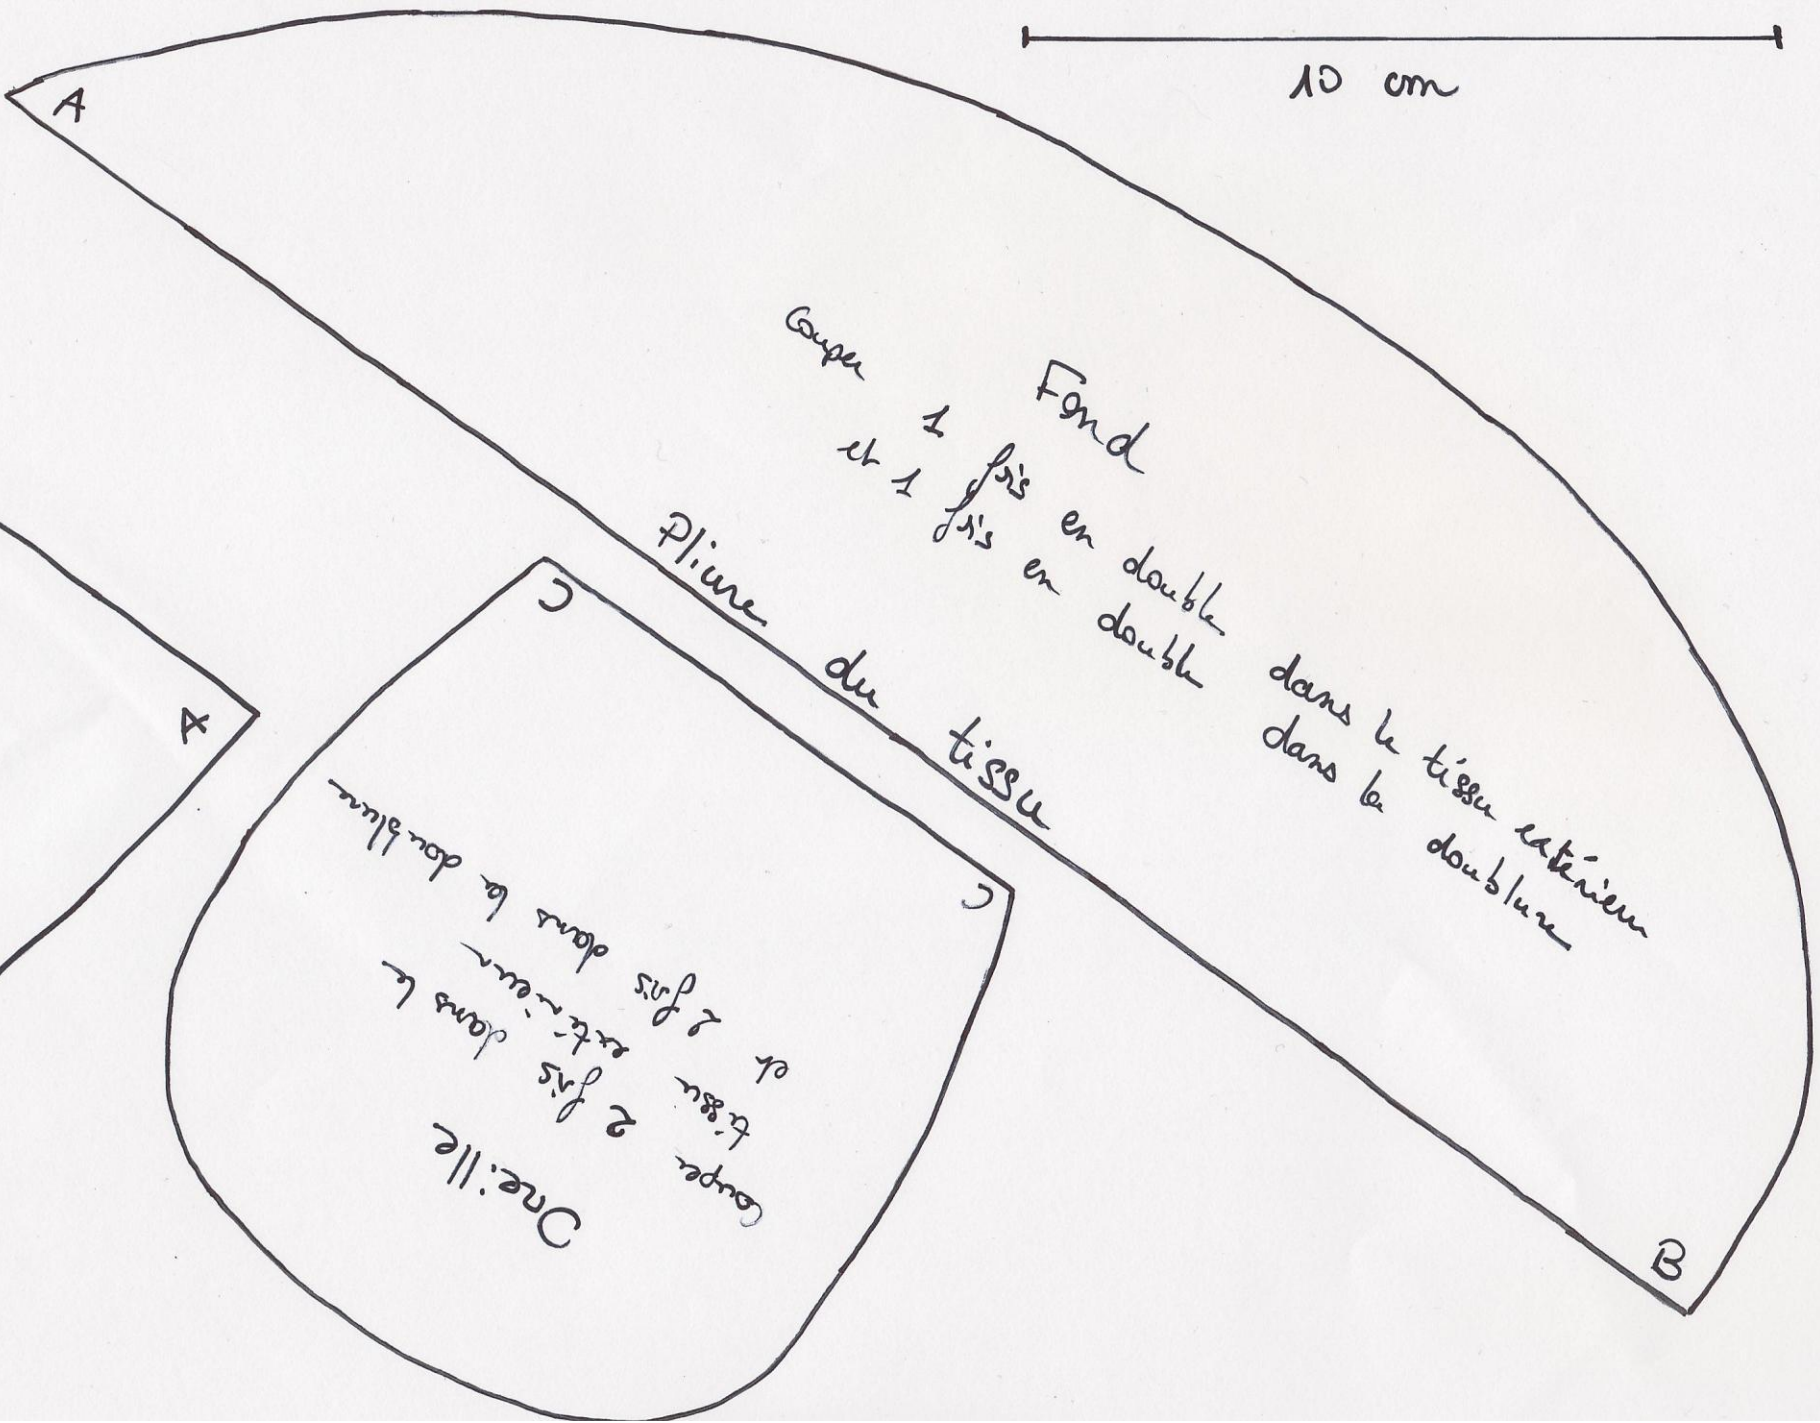 10 cm
A
Fond
Couper 1 fois en double dans le tissu extérieur
et 1 fois en double dans la doublure
Pliure du tissu
B
A
C
C
Oreille
Couper 2 fois dans le
tissu extérieur
et 2 fois dans la doublure